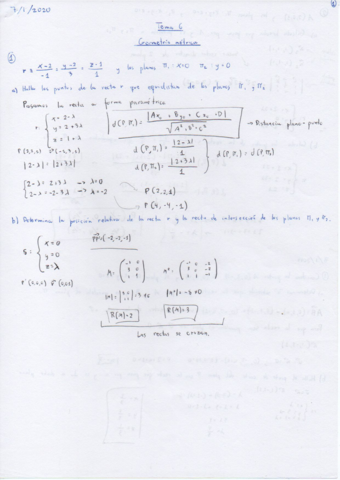 7/1/2020
Tema 6
Geometría métrica
①
r ≡ x-2/-1 = y-2/3 = z-1/1 y los planos π₁: x=0 π₂: y=0
a) Halla los puntos de la recta r que equidistan de los planos π₁ y π₂
Pasamos la recta a forma paramétrica
r: { x = 2-λ
y = 2+3λ
z = 1+λ
→ Distancia plano - punto
P (2,2,1) v⃗ (-1,3,1)
d(P,π₁) = |2-λ|/1
d(P,π₂) = |2+3λ|/1
d(P,π₁) = d(P,π₂)
|2-λ| = |2+3λ|
{ 2-λ = 2+3λ → λ=0
2-λ = -2-3λ → λ=-2
P (2,2,1)
P (4,-4,-1)
b) Determina la posición relativa de la recta r y la recta de intersección de los planos π₁ y π₂.
s = { x=0
y=0
z=λ
PP'=(-2,-2,-1)
R(A)=2
Las rectas se cruzan.